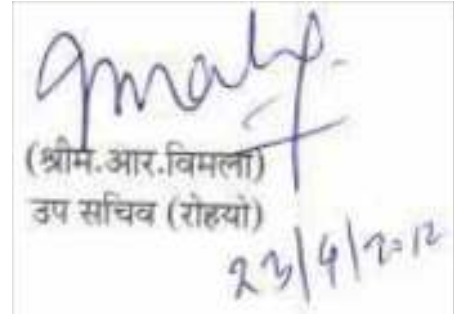 (श्रीम.आर.विमला)
उप सचिव (रोहयो)
23/4/2012